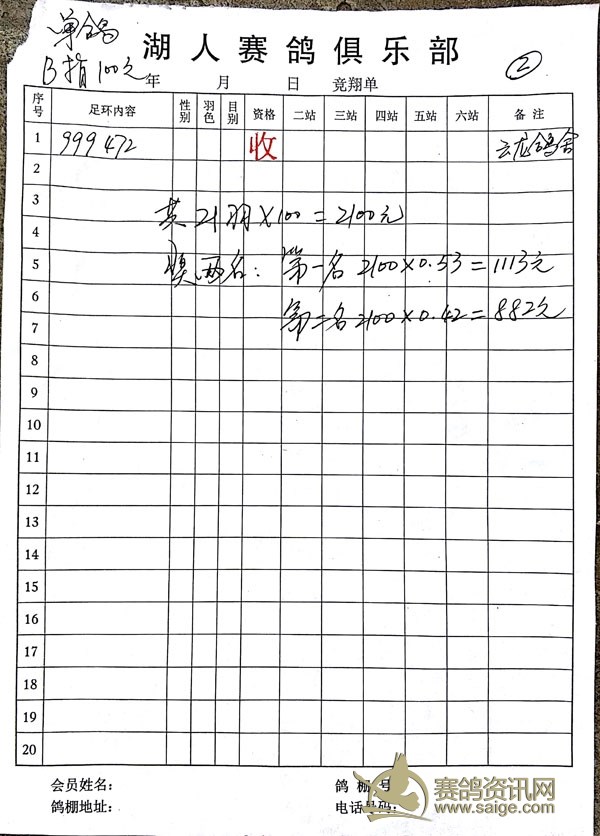 单鸽
B指100元
湖人赛鸽俱乐部
②
年 月 日 竞翔单
序号 足环内容 性别 羽色 目别 资格 二站 三站 四站 五站 六站 备注
1 999472 收 云龙鸽舍
2
3
共21羽×100=2100元
4
5 奖两名：第一名 2100×0.53=1113元
6
第二名 2100×0.42=882元
7
8
9
10
11
12
13
14
15
16
17
18
19
20
会员姓名： 鸽棚 号
鸽棚地址： 电话号码：
赛鸽资讯网
www.saige.com